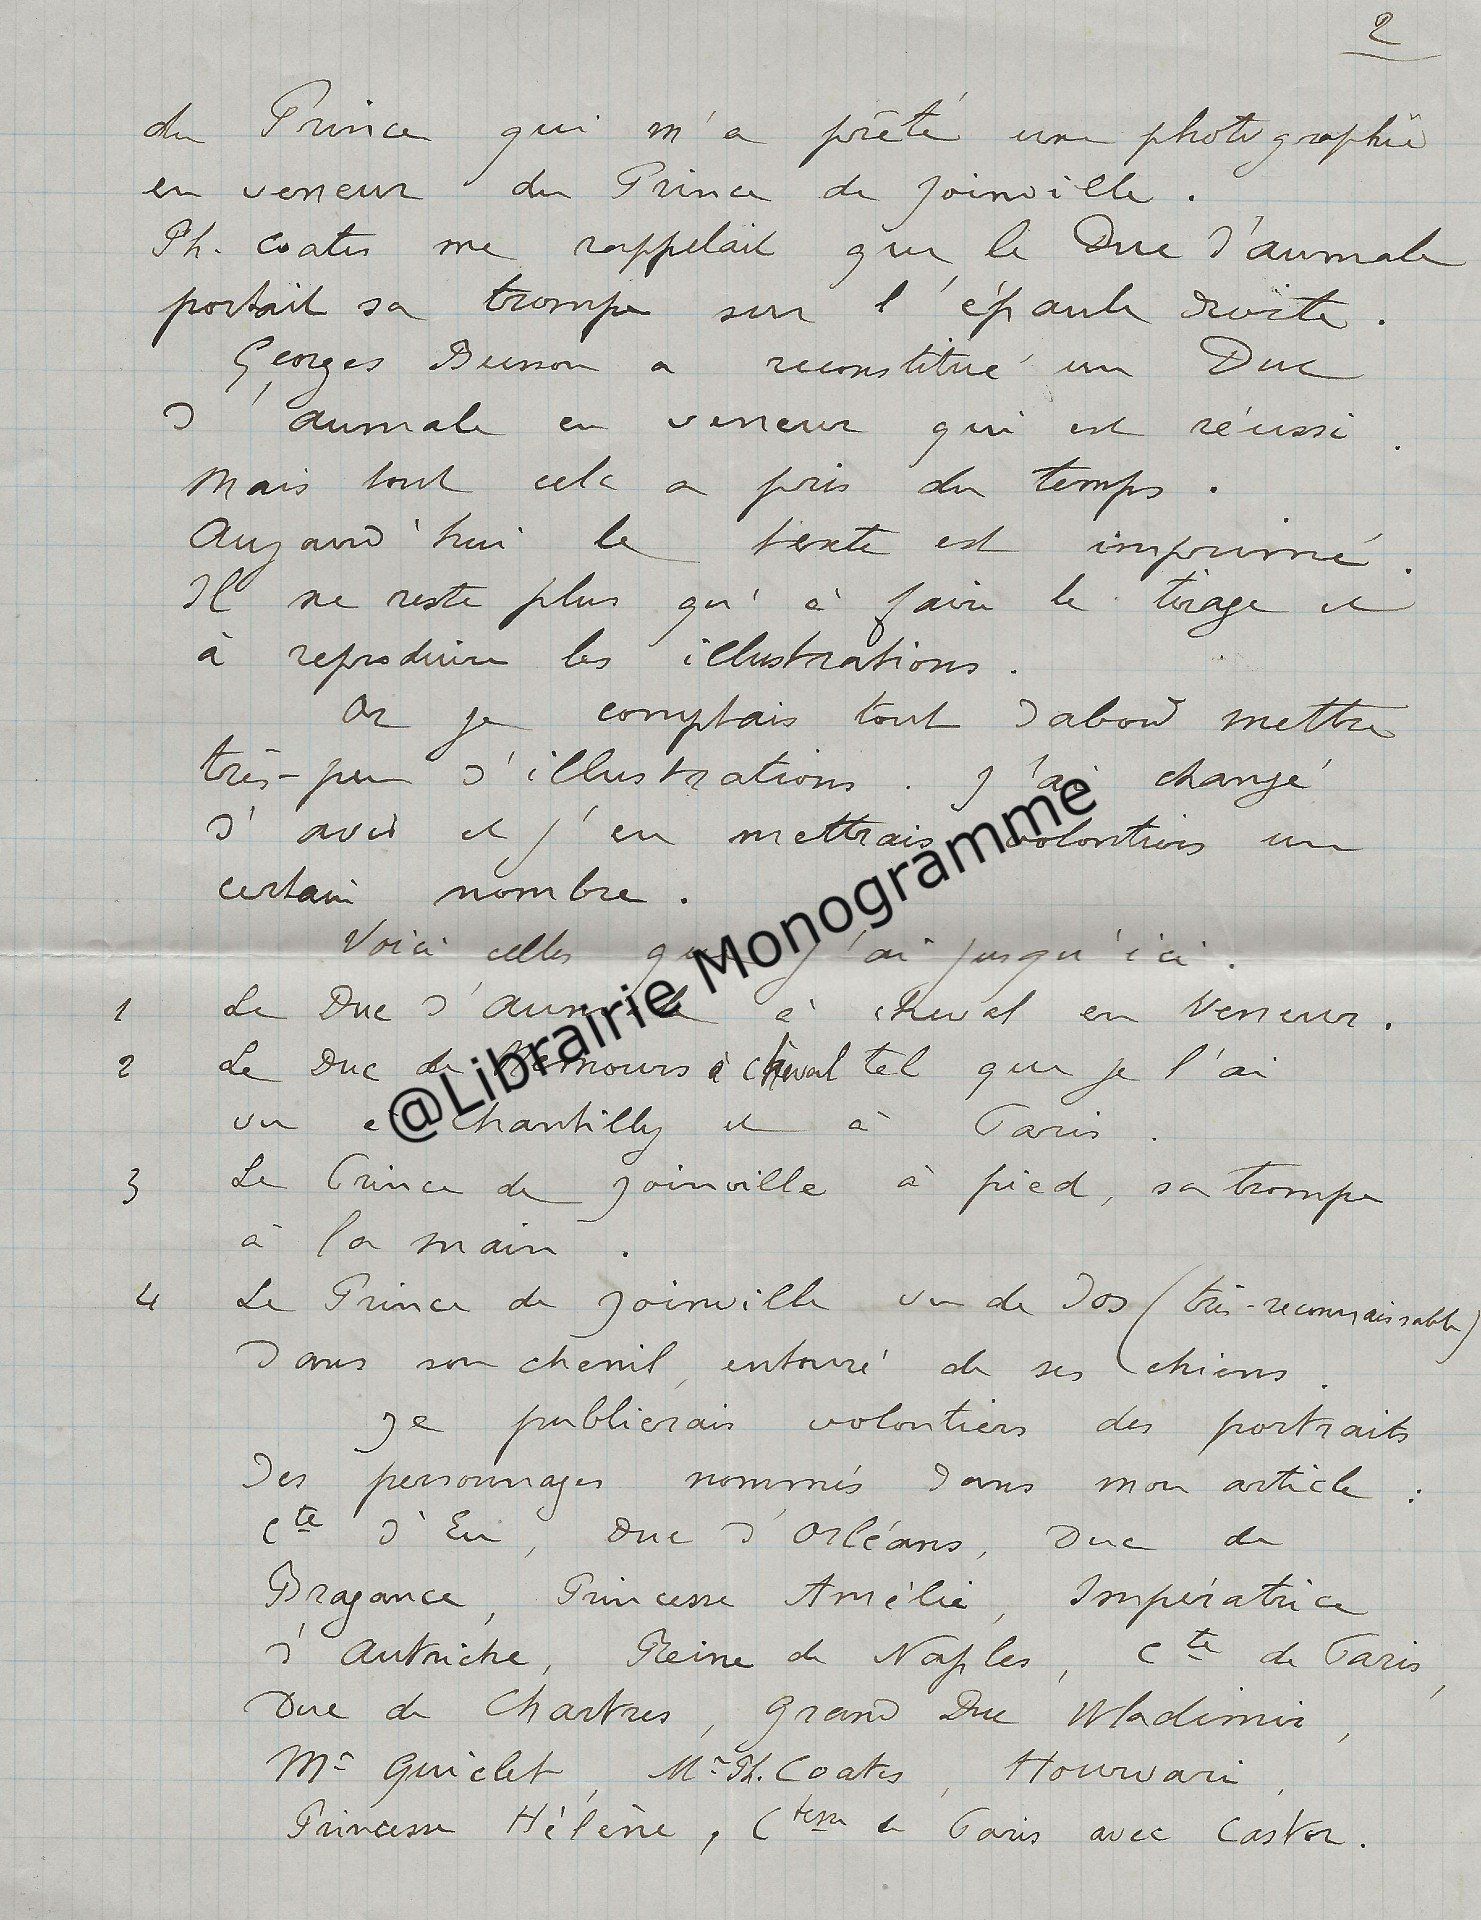 2
du Prince qui m'a prêté une photographie
en veneur du Prince de Joinville.
Ph. Coates me rappelait que le Duc d'aumale
portait sa trompe sur l'épaule droite.
Georges Busson a reconstitué un Duc
d'aumale en veneur qui est réussi.
Mais tout cela a pris du temps.
Aujourd'hui le texte est imprimé.
Il ne reste plus qu'à faire le tirage et
à reproduire les illustrations.
Or je comptais tout d'abord mettre
très-peu d'illustrations. J'ai changé
d'avis et j'en mettrais volontiers un
certain nombre.
Voici celles que j'ai jusqu'ici.
1 Le Duc d'aumale à cheval en Veneur.
2 Le Duc de Nemours à cheval tel que je l'ai
vu à Chantilly et à Paris.
3 Le Prince de Joinville à pied, sa trompe
à la main.
4 Le Prince de Joinville vu de dos (très-reconnaissable)
dans son chenil, entouré de ses chiens.
Je publierais volontiers des portraits
des personnages nommés dans mon article :
Cte d'Eu, Duc d'Orléans, Duc de
Bragance, Princesse Amélie, Impératrice
d'Autriche, Reine de Naples, Cte de Paris,
Duc de Chartres, Grand Duc Wladimir,
Mr Guiclet, Mr Ph. Coates, Hourvari,
Princesse Hélène, Ctesse de Paris avec Castor.
@Librairie Monogramme